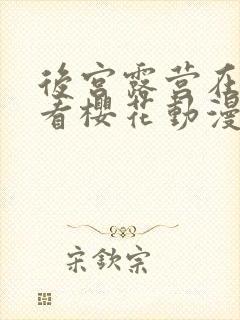 後宮露营在
看樱花動漫
宋欽宗